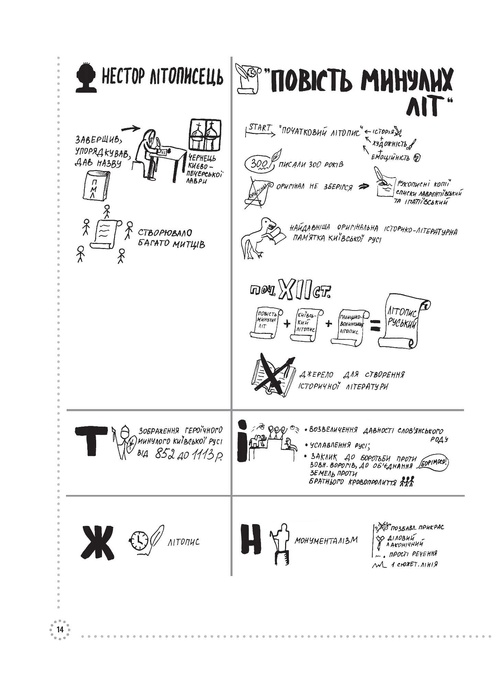 НЕСТОР ЛІТОПИСЕЦЬ
ЗАВЕРШИВ,
УПОРЯДКУВАВ,
ДАВ НАЗВУ
ЧЕРНЕЦЬ
КИЄВО-
ПЕЧЕРСЬКОЇ
ЛАВРИ
ПМЛ
СТВОРЮВАЛО
БАГАТО МИТЦІВ
"ПОВІСТЬ МИНУЛИХ
ЛІТ"
START "ПОЧАТКОВИЙ ЛІТОПИС" ІСТОРІЯ
+
ХУДОЖНІСТЬ
+
ЕМОЦІЙНІСТЬ
300 ПИСАЛИ 300 РОКІВ
ОРИГІНАЛ НЕ ЗБЕРІГСЯ
РУКОПИСНІ КОПІЇ
СПИСКИ ЛАВРЕНТІЇВСЬКИЙ
ТА ІПАТІЇВСЬКИЙ
НАЙДАВНІША ОРИГІНАЛЬНА ІСТОРИКО-ЛІТЕРАТУРНА
ПАМ'ЯТКА КИЇВСЬКОЇ РУСІ
ПОЧ. XII СТ.
ПОВІСТЬ
МИНУЛИХ
ЛІТ
+
КИЇВСЬ-
КИЙ
ЛІТОПИС
+
ГАЛИЦЬКО-
ВОЛИНСЬКИЙ
ЛІТОПИС
=
ЛІТОПИС
РУСЬКИЙ
ДЖЕРЕЛО ДЛЯ СТВОРЕННЯ
ІСТОРИЧНОЇ ЛІТЕРАТУРИ
Т
ЗОБРАЖЕННЯ ГЕРОЇЧНОГО
МИНУЛОГО КИЇВСЬКОЇ РУСІ
ВІД 852 ДО 1113 Р.
І
• ВОЗВЕЛИЧЕННЯ ДАВНОСТІ СЛОВ'ЯНСЬКОГО
РОДУ
• УСЛАВЛЕННЯ РУСІ;
• ЗАКЛИК ДО БОРОТЬБИ ПРОТИ
ЗОВН. ВОРОГІВ, ДО ОБ'ЄДНАННЯ
ЗЕМЕЛЬ ПРОТИ
БРАТНЬОГО КРОВОПРОЛИТТЯ
БОРІМОСЯ!
Ж
ЛІТОПИС
Н
МОНУМЕНТАЛІЗМ
ПОЗБАВЛ. ПРИКРАС
ДІЛОВИЙ
ЛАКОНІЧНИЙ
ПРОСТІ РЕЧЕННЯ
1 СЮЖЕТ. ЛІНІЯ
14